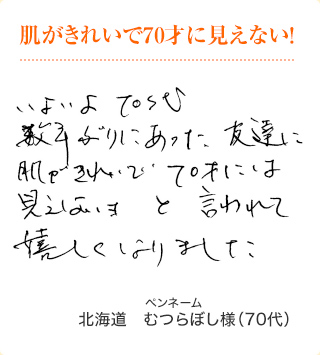 肌がきれいで70才に見えない!
いよいよ 70才
数年ぶりにあった 友達に
肌がきれいで 70才には
見えないネ と 言われて
嬉しくなりました
ペンネーム
北海道 むつらぼし様(70代)